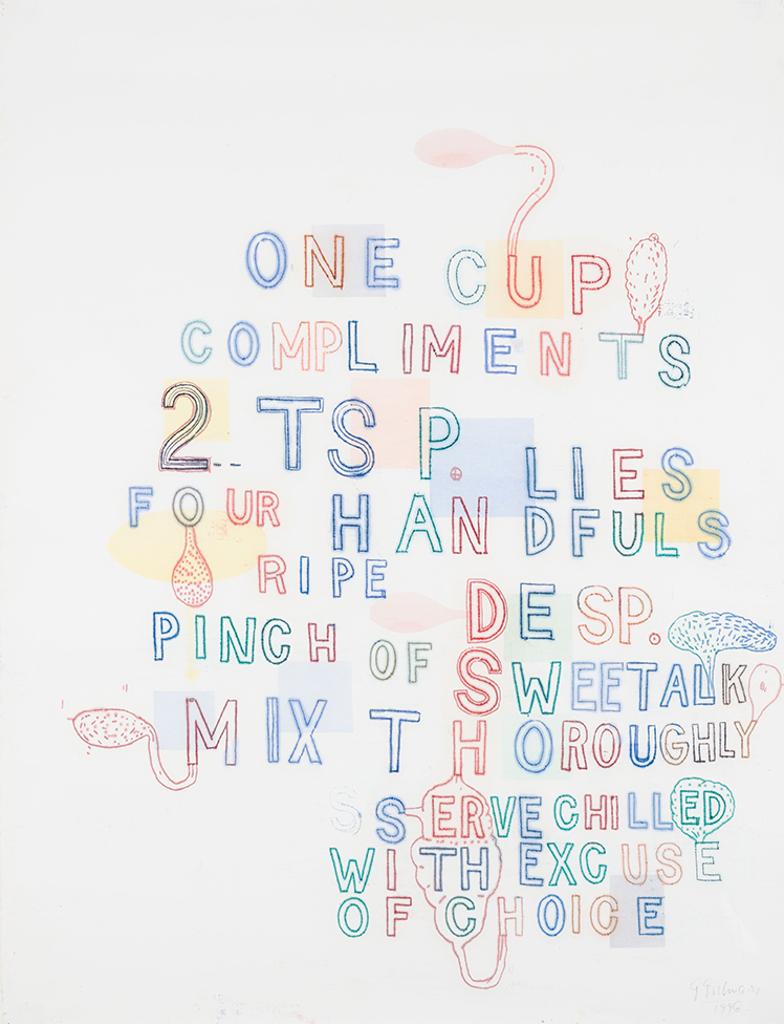 ONE CUP
COMPLIMENTS
2 TSP. LIES
FOUR HANDFULS
RIPE DESP.
PINCH OF SWEETALK
MIX THOROUGHLY
S SERVE CHILLED
WITH EXCUSE
OF CHOICE
1996